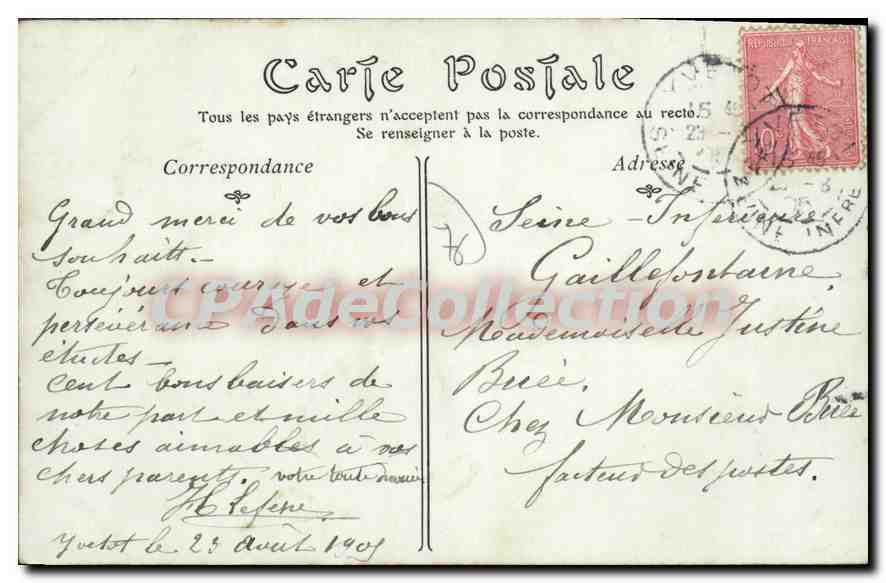 Carte Postale
Tous les pays étrangers n'acceptent pas la correspondance au recto.
Se renseigner à la poste.
Correspondance
Grand merci de vos bons
souhaits.-
Toujours courage et
persévérance dans vos
études -
Cent bons baisers de
notre part et mille
choses aimables à vos
chers parents. votre toute
H Lefene
Yvetot le 23 août 1905
Adresse
Seine-Inférieure
Gaillefontaine
Mademoiselle Justine
Buée.
Chez Monsieur Buée
facteur des postes.
REPUBLIQUE FRANÇAISE
10
YVETOT
SEINE INFRE
CPAdeCollection